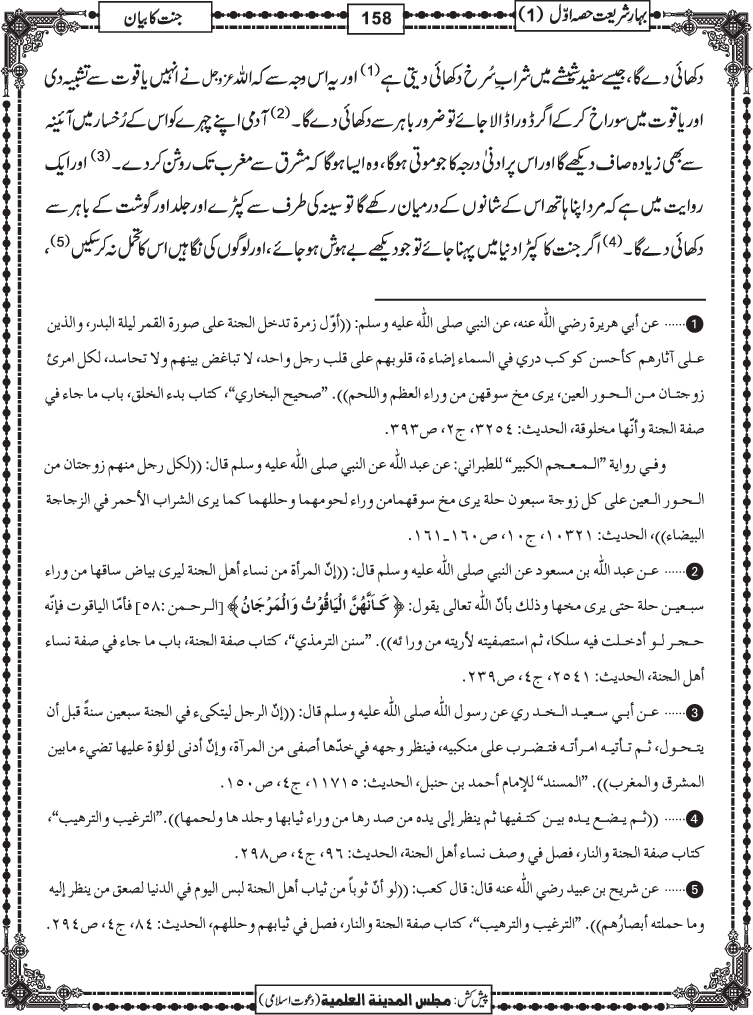 بہارِ شریعت حصہ اوّل (1)
158
جنت کا بیان
دکھائی دے گا، جیسے سفید شیشے میں شرابِ سُرخ دکھائی دیتی ہے (1) اور یہ اس وجہ سے کہ اللہ عزوجل نے انہیں یاقوت سے تشبیہ دی
اور یاقوت میں سوراخ کر کے اگر ڈورا ڈالا جائے تو ضرور باہر سے دکھائی دے گا۔ (2) آدمی اپنے چہرے کو اس کے رُخسار میں آئینہ
سے بھی زیادہ صاف دیکھے گا اور اس پر ادنیٰ درجہ کا جو موتی ہوگا، وہ ایسا ہوگا کہ مشرق سے مغرب تک روشن کر دے۔ (3) اور ایک
روایت میں ہے کہ مرد اپنا ہاتھ اس کے شانوں کے درمیان رکھے گا تو سینہ کی طرف سے کپڑے اور جلد اور گوشت کے باہر سے
دکھائی دے گا۔ (4) اگر جنت کا کپڑا دنیا میں پہنا جائے تو جو دیکھے بے ہوش ہو جائے، اور لوگوں کی نگاہیں اس کا تحمل نہ کر سکیں (5)،
1 ...... عن أبي هريرة رضي الله عنه، عن النبي صلى الله عليه وسلم: ((أوّل زمرة تدخل الجنة على صورة القمر ليلة البدر، والذين
على آثارهم كأحسن كوكب دري في السماء إضاءة، قلوبهم على قلب رجل واحد، لا تباغض بينهم ولا تحاسد، لكل امرئ
زوجتان من الحور العين، يرى مخ سوقهن من وراء العظم واللحم)). ”صحيح البخاري“، كتاب بدء الخلق، باب ما جاء في
صفة الجنة وأنّها مخلوقة، الحديث: ٣٢٥٤، ج٢، ص٣٩٣.
وفي رواية ”المعجم الكبير“ للطبراني: عن عبد الله عن النبي صلى الله عليه وسلم قال: ((لكل رجل منهم زوجتان من
الحور العين على كل زوجة سبعون حلة يرى مخ سوقهما من وراء لحومهما وحللهما كما يرى الشراب الأحمر في الزجاجة
البيضاء))، الحديث: ١٠٣٢١، ج١٠، ص١٦٠-١٦١.
2 ...... عن عبد الله بن مسعود عن النبي صلى الله عليه وسلم قال: ((إنّ المرأة من نساء أهل الجنة ليرى بياض ساقها من وراء
سبعين حلة حتى يرى مخها وذلك بأنّ الله تعالى يقول: ﴿ كَأَنَّهُنَّ الْيَاقُوْتُ وَالْمَرْجَانُ ﴾ [الرحمن :٥٨] فأمّا الياقوت فإنّه
حجر لو أدخلت فيه سلكا، ثم استصفيته لأريته من ورائه)). ”سنن الترمذي“، كتاب صفة الجنة، باب ما جاء في صفة نساء
أهل الجنة، الحديث: ٢٥٤١، ج٤، ص٢٣٩.
3 ...... عن أبي سعيد الخدري عن رسول الله صلى الله عليه وسلم قال: ((إنّ الرجل ليتكىء في الجنة سبعين سنةً قبل أن
يتحول، ثم تأتيه امرأته فتضرب على منكبيه، فينظر وجهه في خدّها أصفى من المرآة، وإنّ أدنى لؤلؤة عليها تضيء مابين
المشرق والمغرب)). ”المسند“ للإمام أحمد بن حنبل، الحديث: ١١٧١٥، ج٤، ص١٥٠.
4 ...... ((ثم يضع يده بين كتفيها ثم ينظر إلى يده من صدرها من وراء ثيابها وجلدها ولحمها)).”الترغيب والترهيب“،
كتاب صفة الجنة والنار، فصل في وصف نساء أهل الجنة، الحديث: ٩٦، ج٤، ص٢٩٨.
5 ...... عن شريح بن عبيد رضي الله عنه قال: قال كعب: ((لو أنّ ثوباً من ثياب أهل الجنة لبس اليوم في الدنيا لصعق من ينظر إليه
وما حملته أبصارُهم)). ”الترغيب والترهيب“، كتاب صفة الجنة والنار، فصل في ثيابهم وحللهم، الحديث: ٨٤، ج٤، ص٢٩٤.
پیش کش: مجلس المدينة العلمية (دعوت اسلامی)